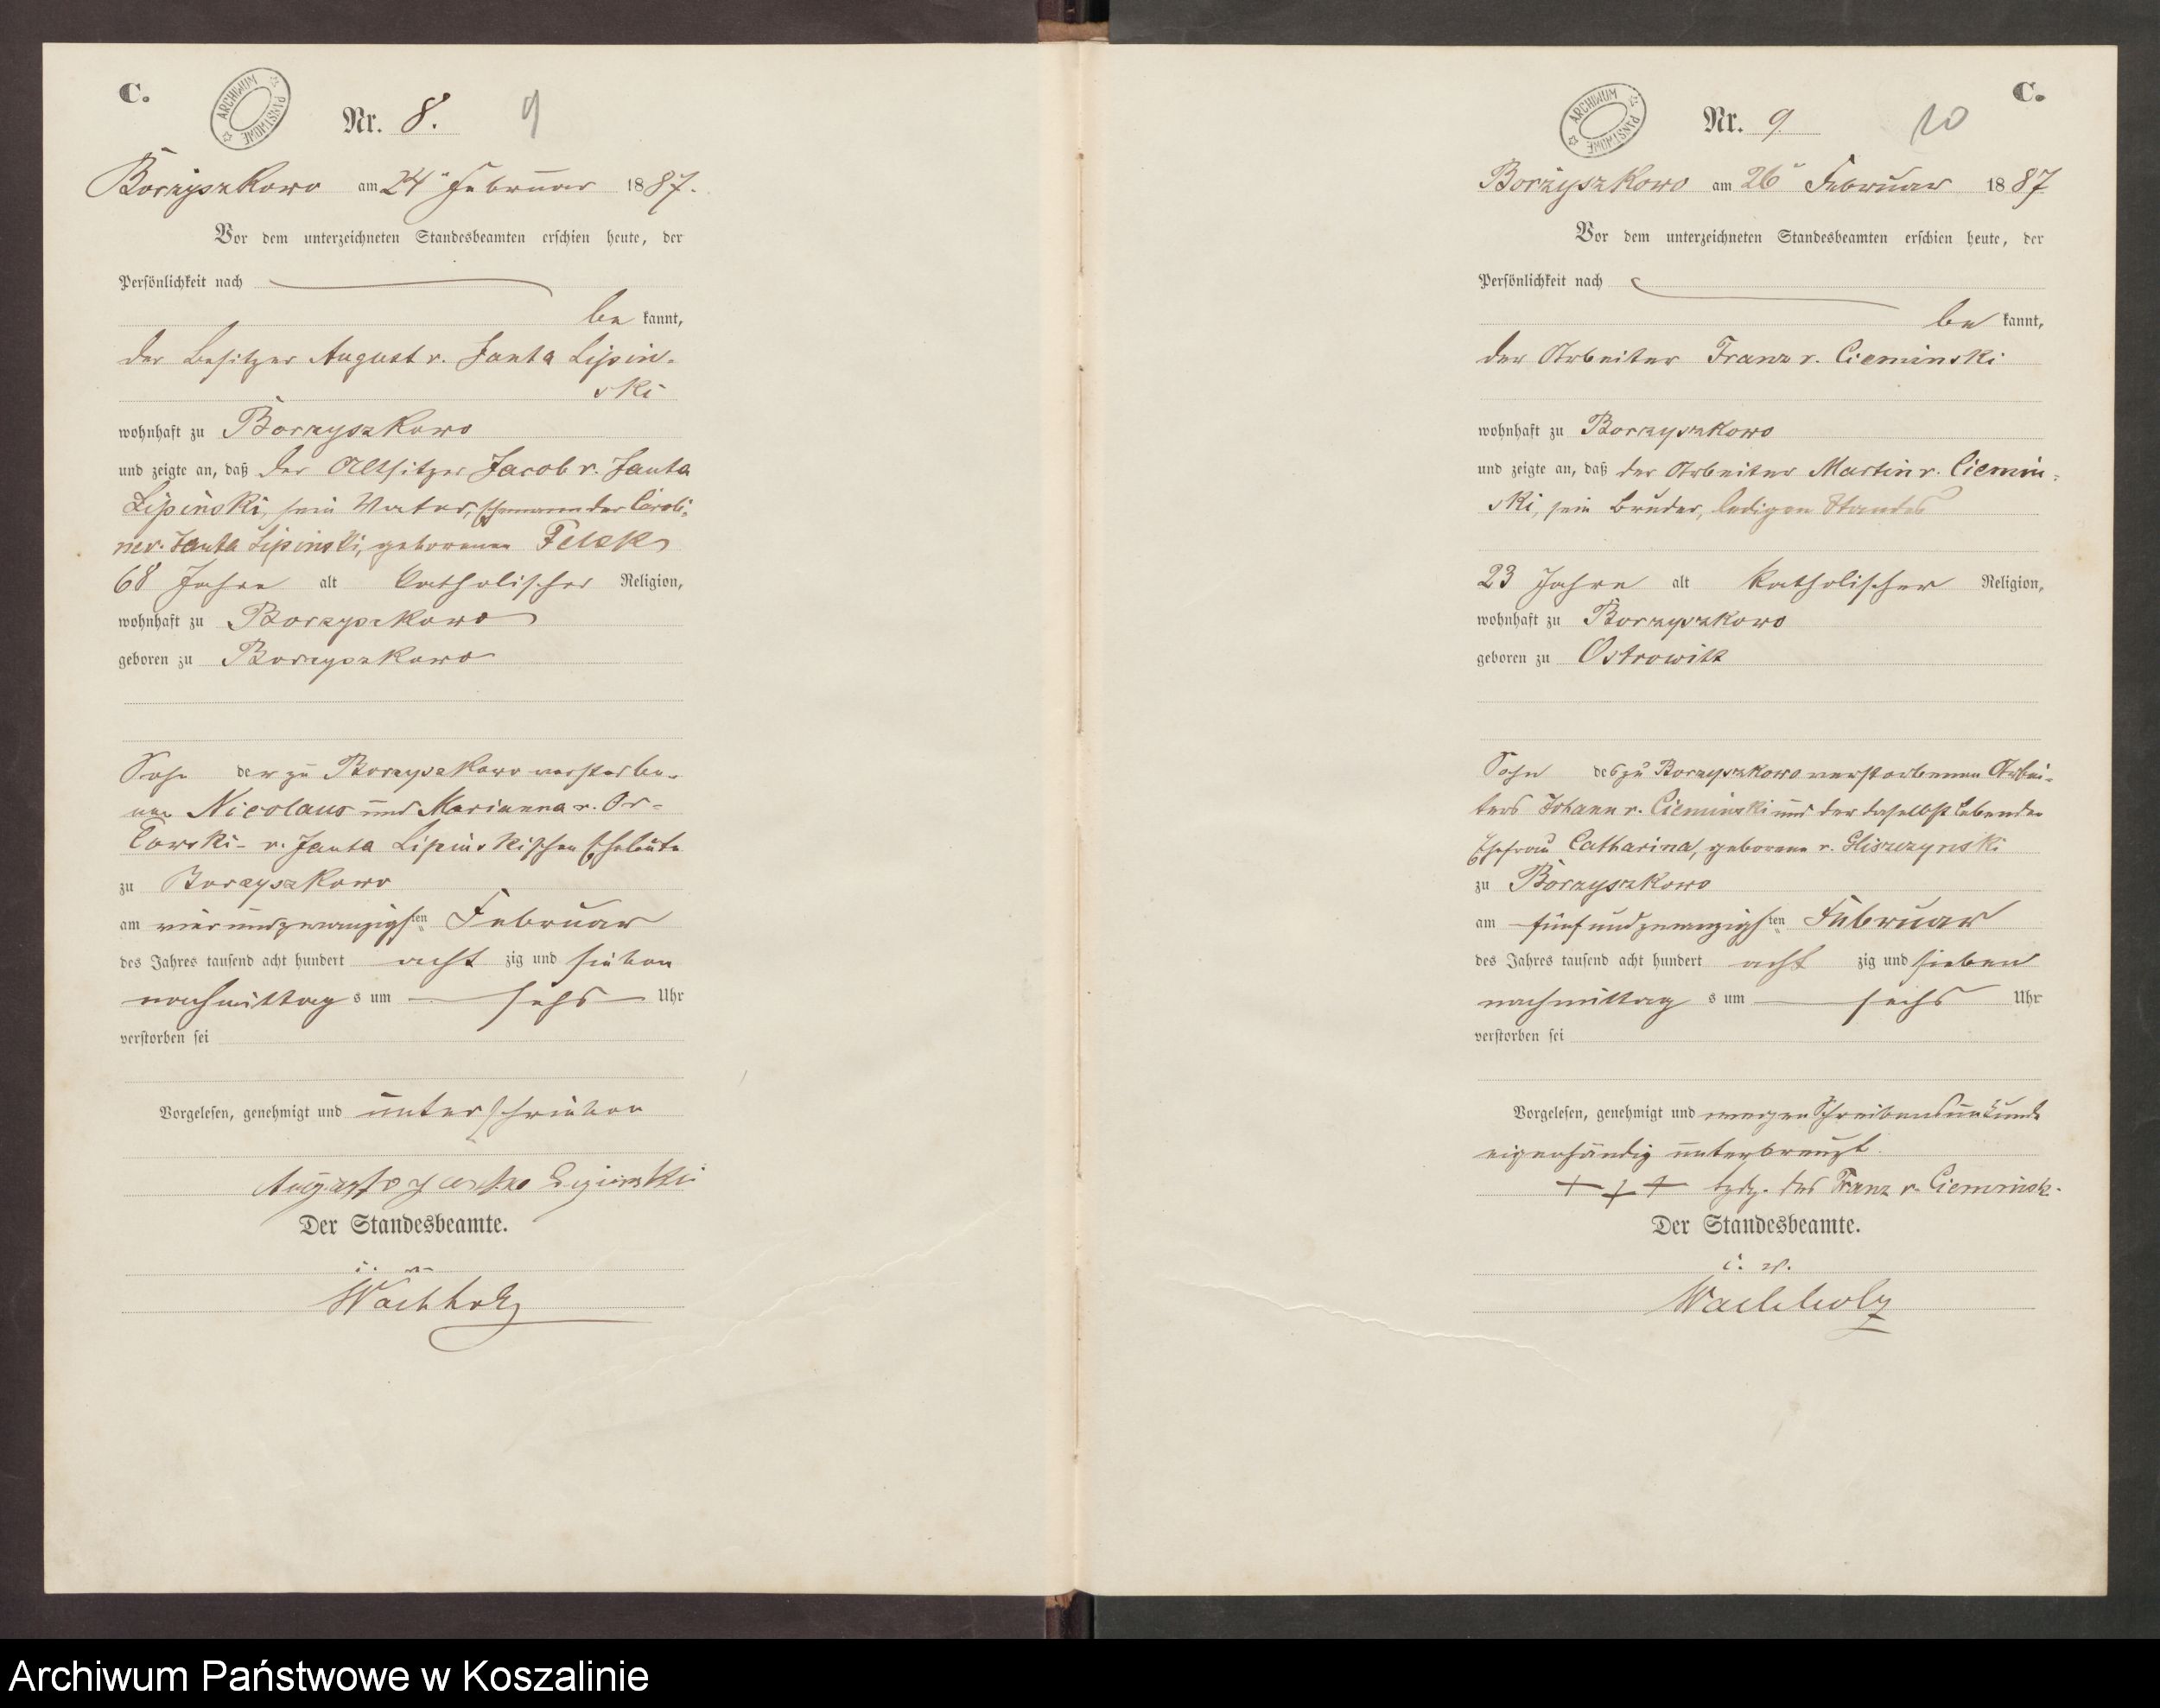 C.
ARCHIWUM PAŃSTWOWE
Nr. 8. 9
Borzyszkowo am 24ten Februar 1887.
Vor dem unterzeichneten Standesbeamten erschien heute, der
Persönlichkeit nach
be kannt,
der Besitzer August v. Janta Lipin-
ski
wohnhaft zu Borzyszkowo
und zeigte an, daß der Altsitzer Jacob v. Janta
Lipinski, sein Vater, Ehemann der Caroli-
ne v. Janta Lipinski, geborenen
68 Jahre alt katholischer Religion,
wohnhaft zu Borzyszkowo
geboren zu Borzyszkowo
Sohn der zu Borzyszkowo verstorbe-
nen Nicolaus und Marianna v. Or-
lowski- v. Janta Lipinskischen Eheleute
zu Borzyszkowo
am vierundzwanzigsten Februar
des Jahres tausend acht hundert acht zig und sieben
nachmittag s um sechs Uhr
verstorben sei
Vorgelesen, genehmigt und unterschrieben
Lipinski
Der Standesbeamte.
i. v.
Wachholz
C.
ARCHIWUM PAŃSTWOWE
Nr. 9. 10
Borzyszkowo am 26ten Februar 1887
Vor dem unterzeichneten Standesbeamten erschien heute, der
Persönlichkeit nach
be kannt,
der Arbeiter Franz v. Cieminski
wohnhaft zu Borzyszkowo
und zeigte an, daß der Arbeiter Martin v. Ciemin-
ski, sein Bruder, ledigen Standes
23 Jahre alt katholischer Religion,
wohnhaft zu Borzyszkowo
geboren zu Ostrowitt
Sohn des zu Borzyszkowo verstorbenen Arbei-
ters Johann v. Cieminski und der daselbst lebenden
Ehefrau Catharina, geborene v. Gliszczynski
zu Borzyszkowo
am fünfundzwanzigsten Februar
des Jahres tausend acht hundert acht zig und sieben
nachmittag s um sechs Uhr
verstorben sei
Vorgelesen, genehmigt und wegen Schreibensunkunde
eigenhändig unterkreuzt.
+ + + des Franz v. Cieminski.
Der Standesbeamte.
i. v.
Wachholz
Archiwum Państwowe w Koszalinie